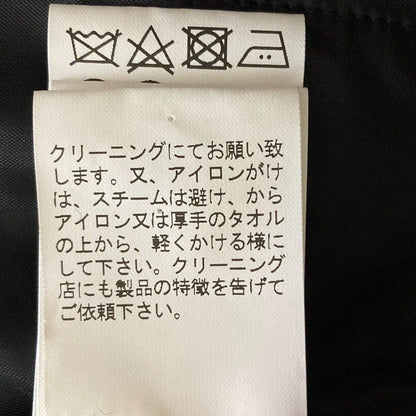 クリーニングにてお願い致
します。又、アイロンがけ
は、スチームは避け、から
アイロン又は厚手のタオル
の上から、軽くかける様に
して下さい。クリーニング
店にも製品の特徴を告げて
ご依頼下さい。